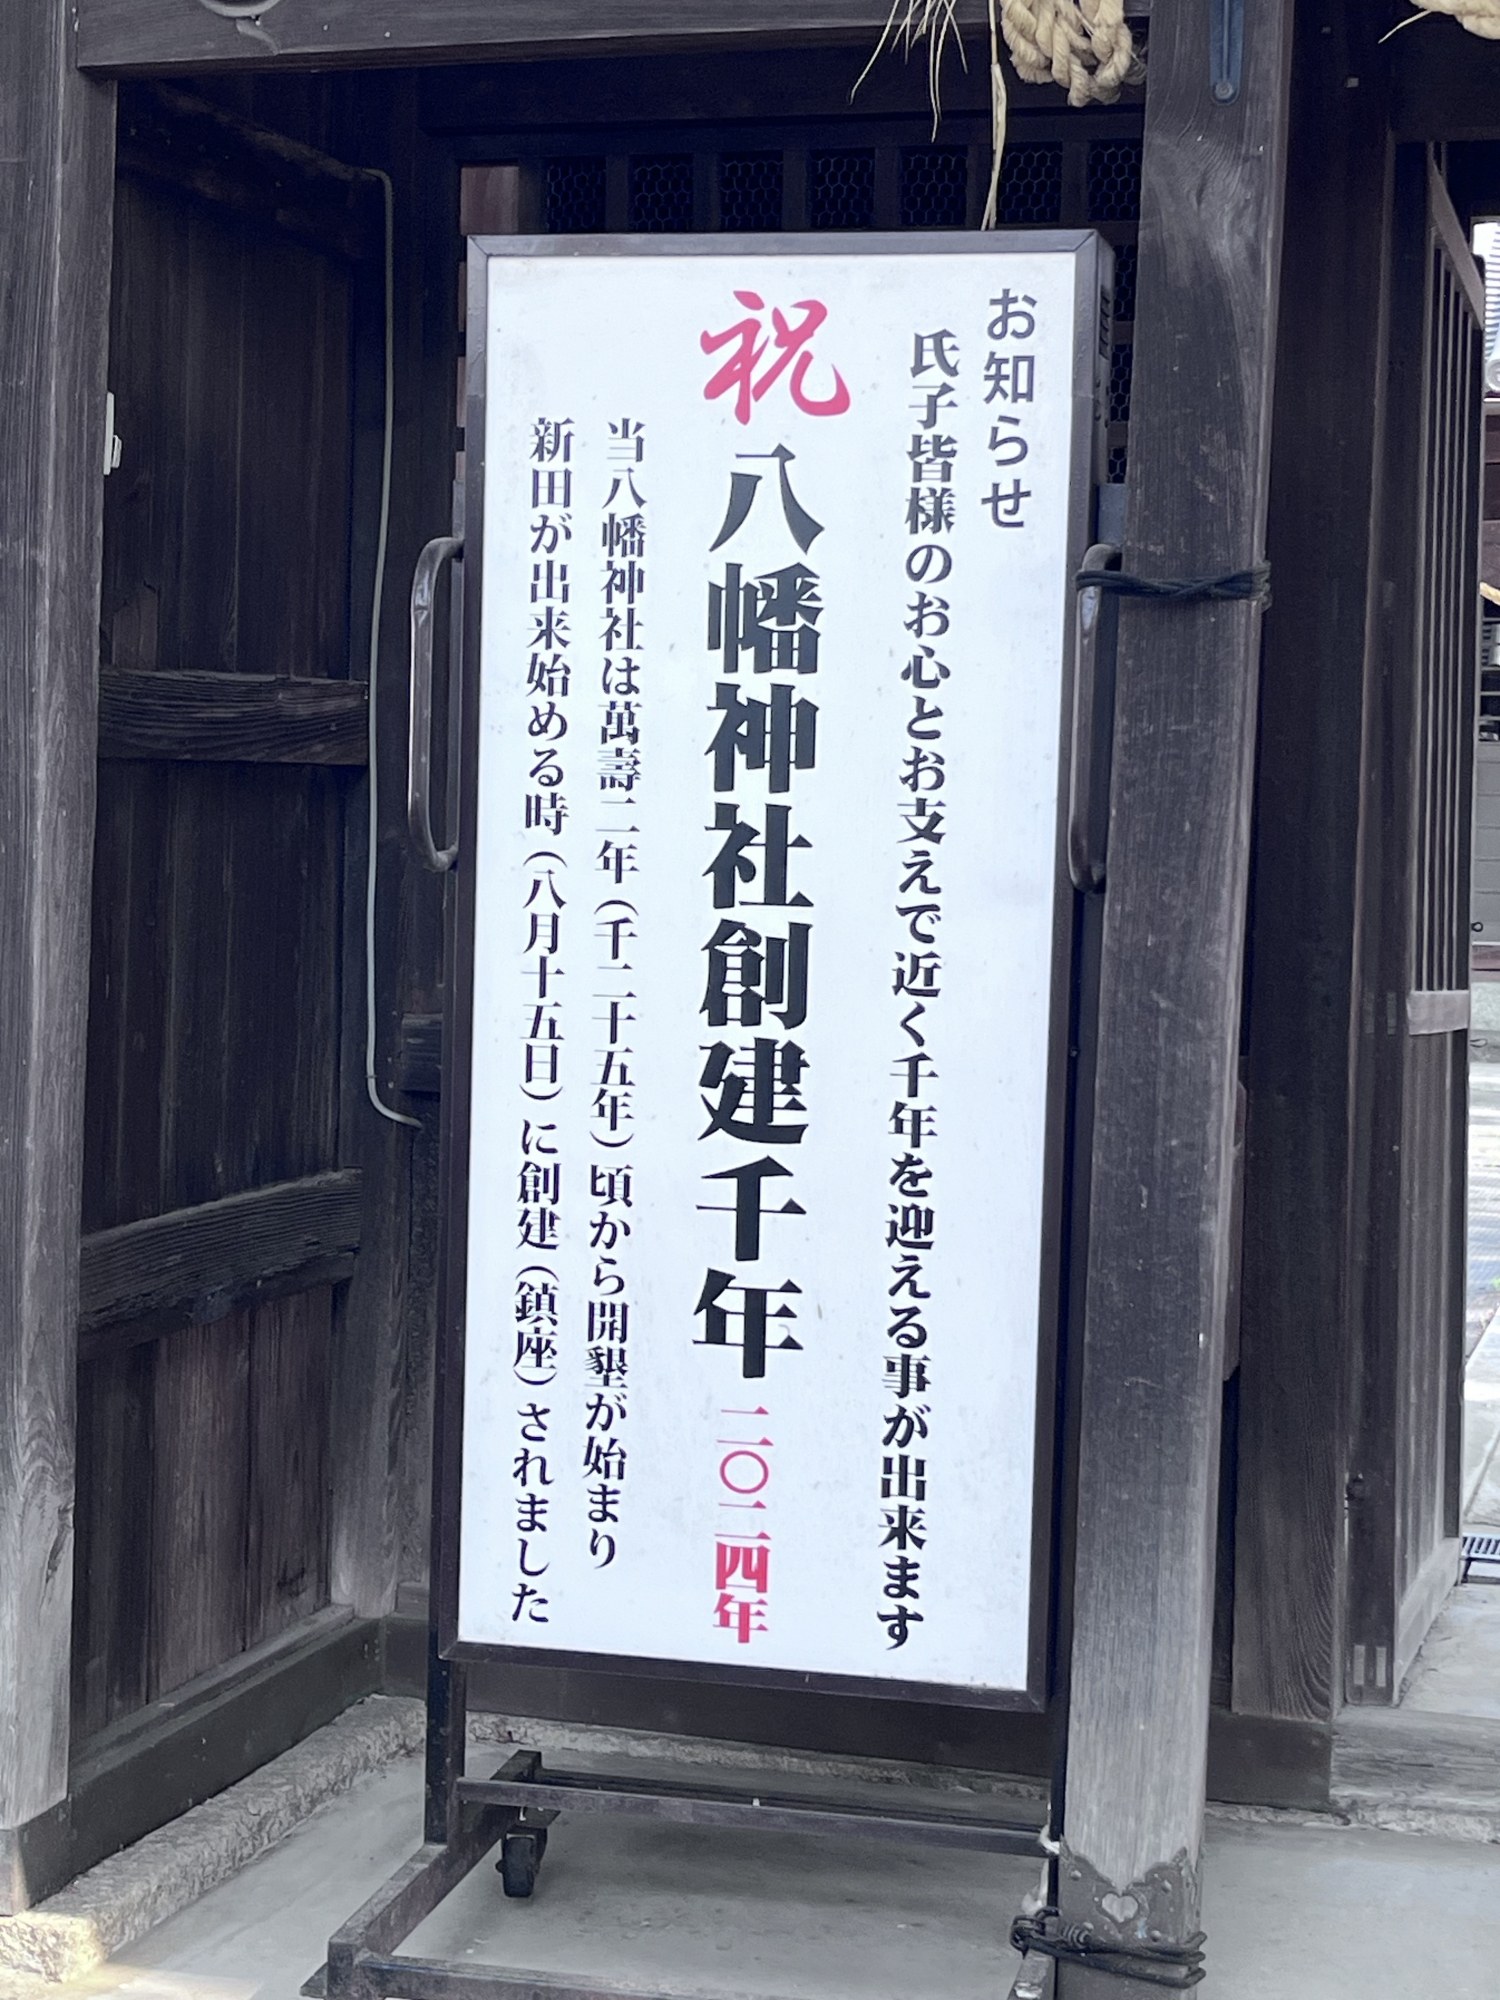 お知らせ
氏子皆様のお心とお支えで近く千年を迎える事が出来ます
祝八幡神社創建千年 二〇二四年
当八幡神社は萬壽二年(千二十五年)頃から開墾が始まり
新田が出来始める時(八月十五日)に創建(鎮座)されました